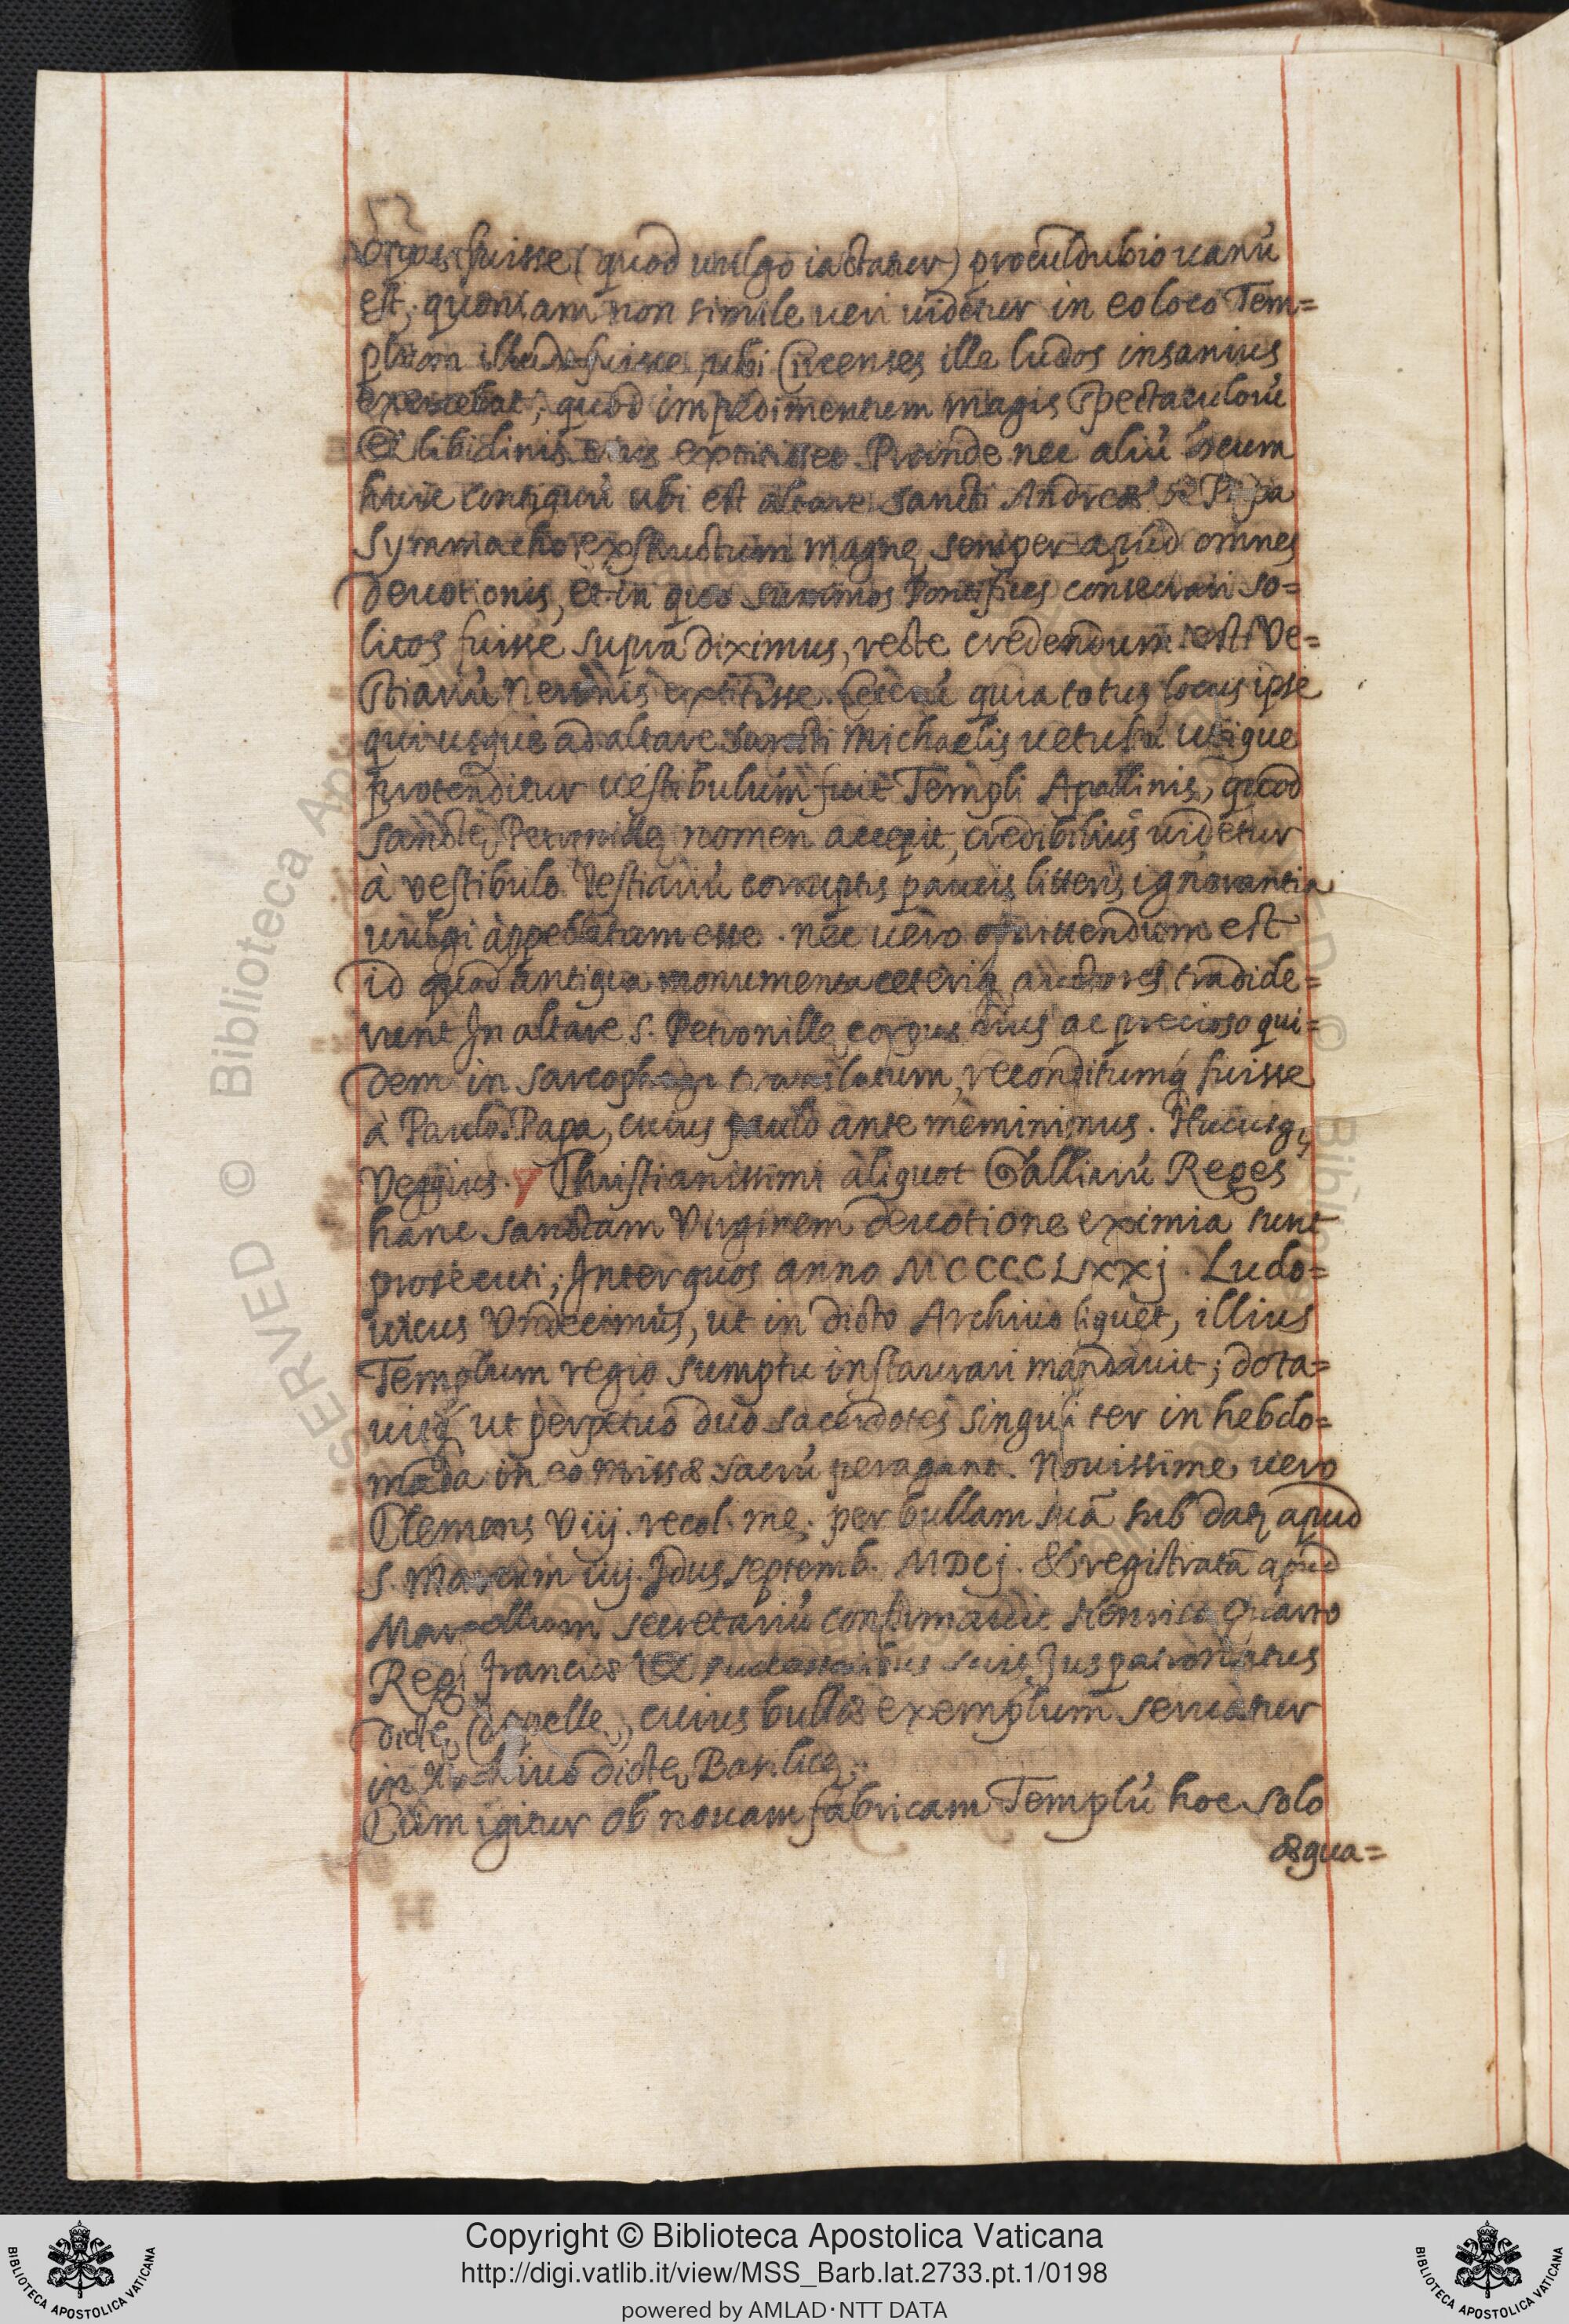 fuisse (quod uulgo iactatur) proculdubio uanũ
est; quoniam non simile ueri uidetur in eo loco Tem=
plum illud fuisse, ubi Circenses ille ludos insanius
exercebat; quod impedimentum magis Spectaculorũ
Et libidinis eius extitisset. Proinde nec aliũ locum
huic contiguũ ubi est altare Sancti Andreæ a Papa
Symmacho exstructum magnę semper apud omnes
deuotionis, et in quo summos Pontifices consecrari so=
litos fuisse supra diximus, recte credendum est Ve=
stiariũ Neronis extitisse. Ceterũ quia totus locus ipse
qui usque ad altare Sancti Michaelis uetustũ utique
protenditur uestibulum fuit Templi Apollinis, quod
Sanctę Petronillę nomen accepit, credibilius uidetur
à vestibulo Vestiariũ corruptis paucis litteris ignorantia
uulgi appellatum esse. nec uero omittendum est
id quod antiqua monumenta ceteriq auctores tradide=
runt In altare S. Petronillę corpus eius ac precioso qui=
dem in sarcophago translatum, reconditumq́ fuisse
à Paulo Papa, cuius paulo ante meminimus. Hucusq;
Veggius. Christianissimi aliquot Galliarũ Reges
hanc sanctam Virginem deuotione eximia sunt
prosecuti; Inter quos anno MCCCCLXXj. Ludo=
uicus Vndecimus, ut in dicto Archiuo liquet, illius
Templum regio sumptu instaurari mandauit; dota=
uitq́ ut perpetuo duo sacerdotes singuli ter in hebdo=
mada in eo missæ sacrũ peragant. Nouissime uero
Clemens Viij. recol. me. per bullam suã sub datȝ apud
S. Marcum iiij. Idus septemb. MDCj. & registratã apud
Marcellum secretariũ confirmauit Henrico Quarto
Regi Franciæ Et successoribus suis Juspatronatus
dictę Capellę, cuius bullæ exemplum seruatur
in Archiuo dictę Basilicę.
Cum igitur ob nouam fabricam Templũ hoc solo
æqua=
Copyright © Biblioteca Apostolica Vaticana
http://digi.vatlib.it/view/MSS_Barb.lat.2733.pt.1/0198
powered by AMLAD·NTT DATA
BIBLIOTECA APOSTOLICA VATICANA
BIBLIOTECA APOSTOLICA VATICANA